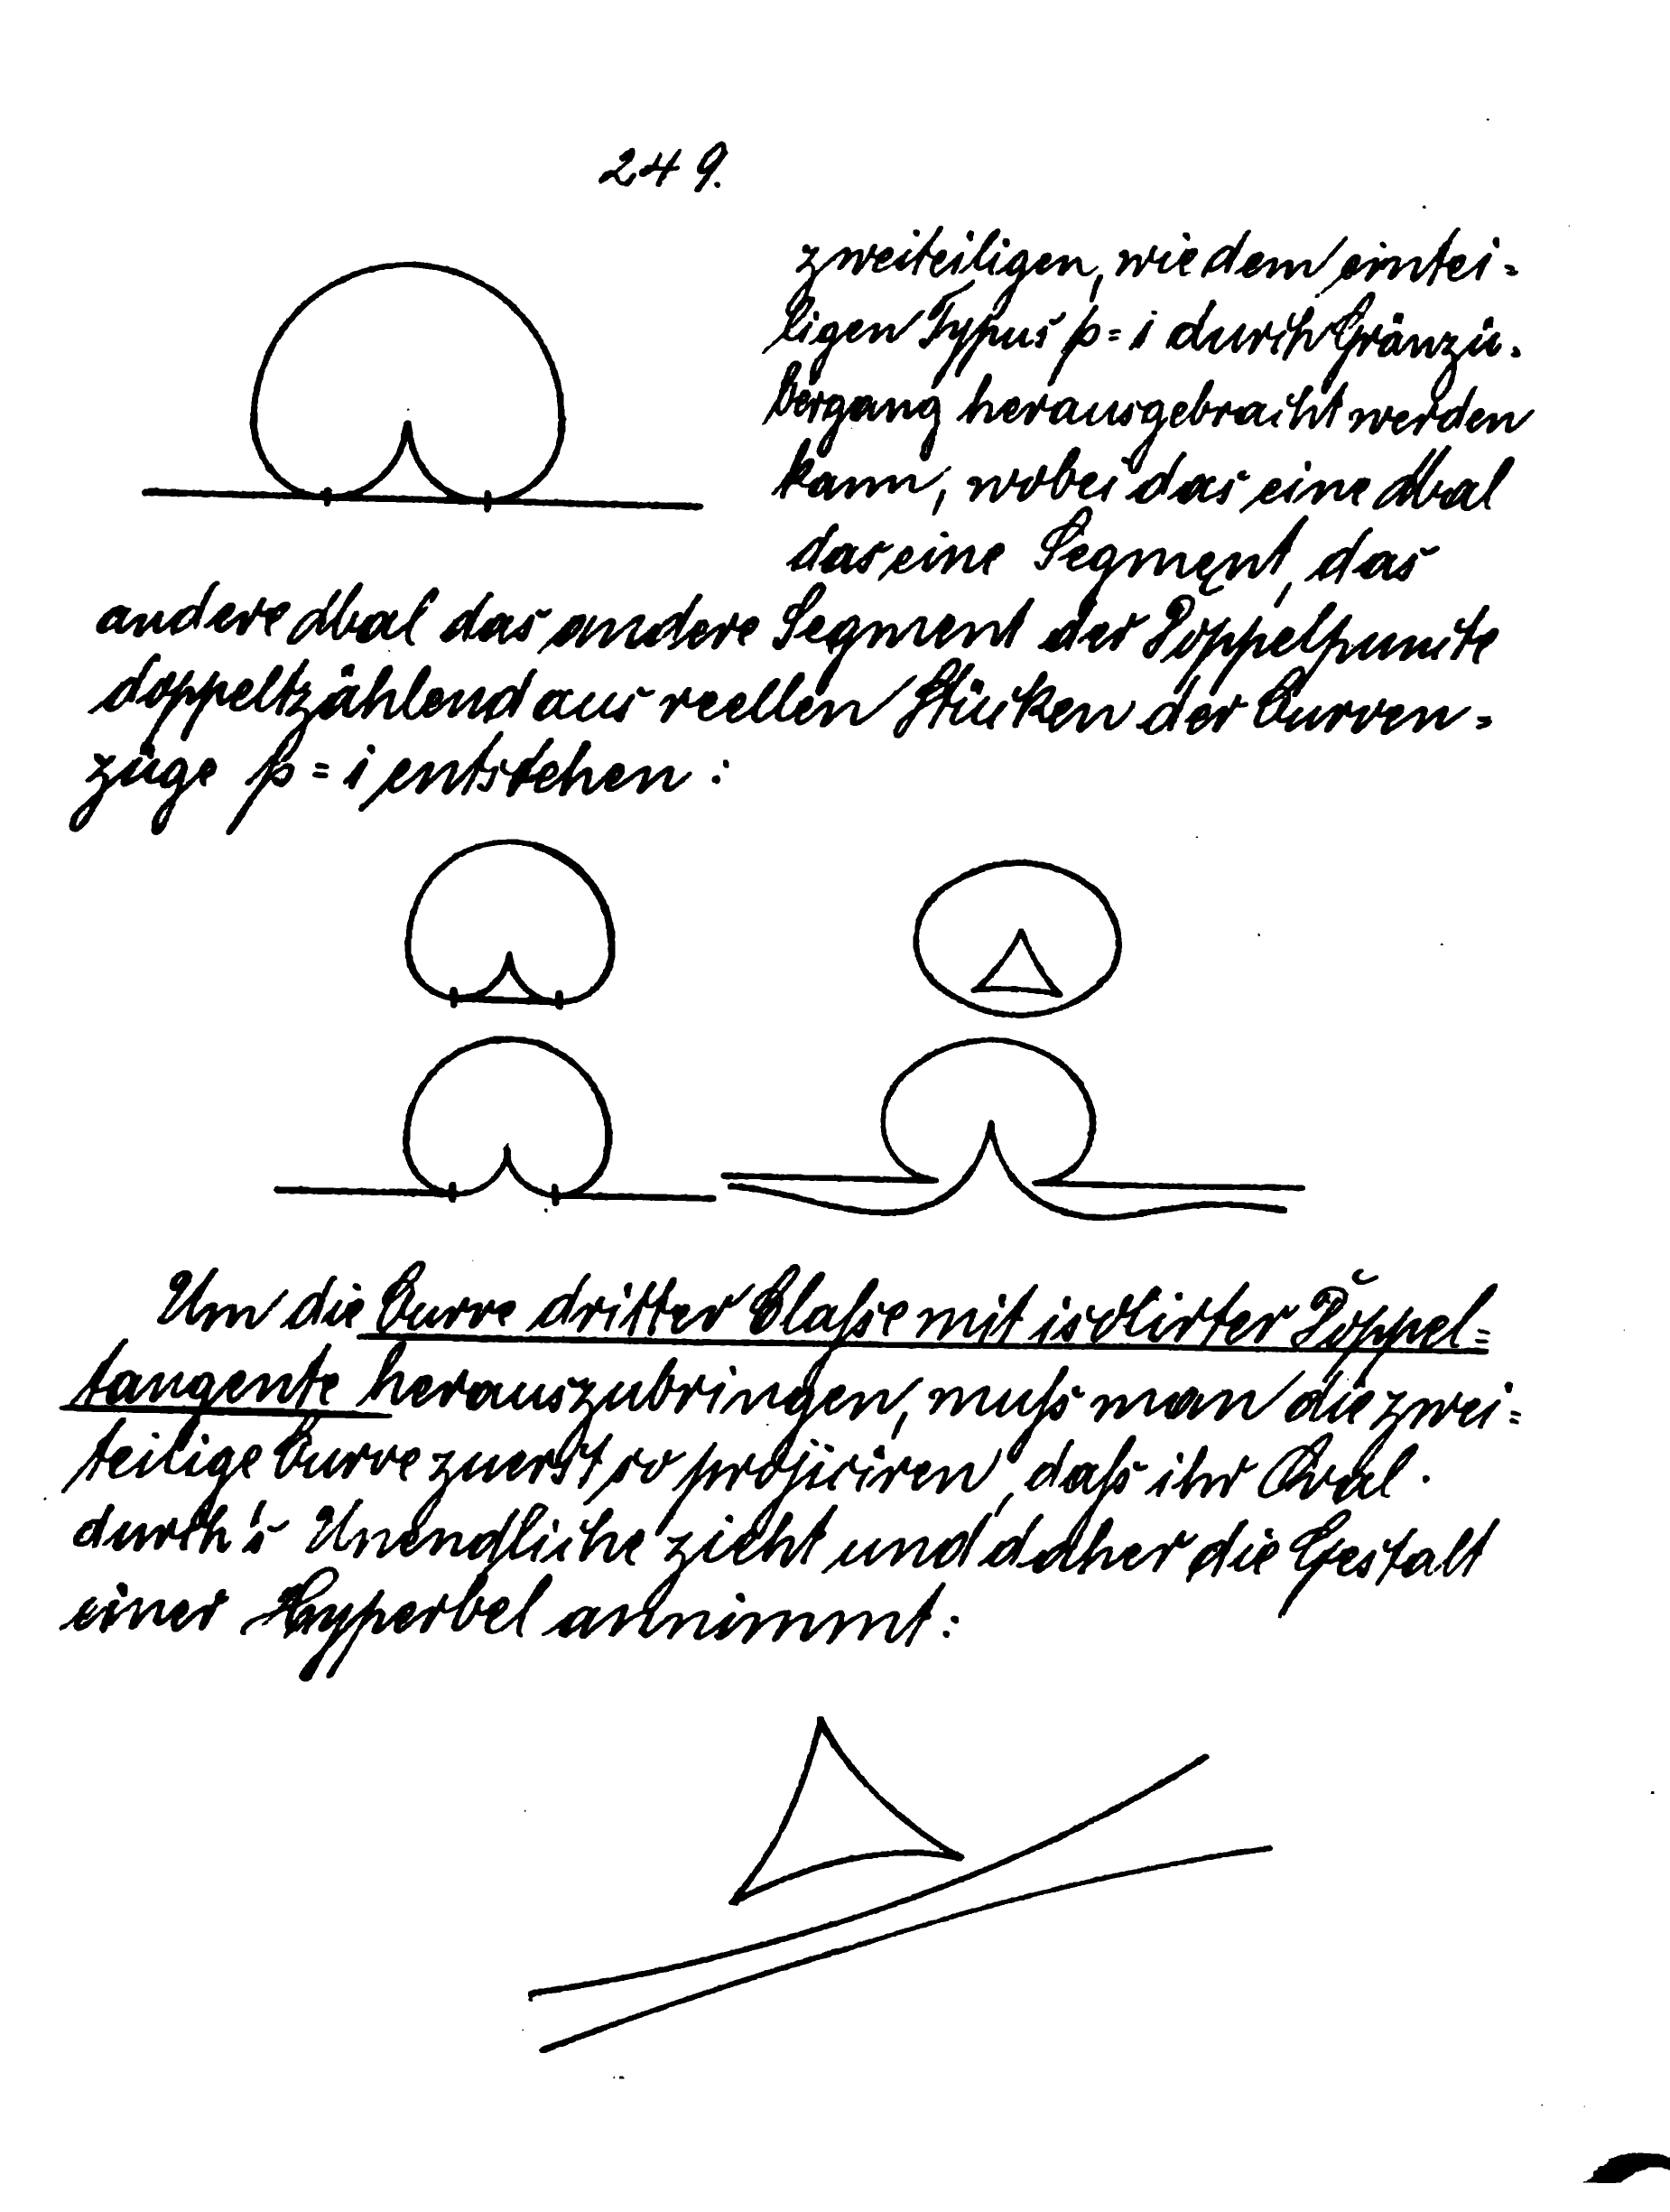 249.
zweiteiligen, wie dem eintei=
ligen Typus p = 1 durch Gränzü=
bergang herausgebracht werden
kann, wobei das eine Mal
das eine Segment, das
andere Mal das andere Segment der Doppelpuncte
doppeltzählend aus reellen Stücken der Curven=
züge p = 1 entstehen:
Um die Curve dritter Classe mit isolirter Doppel=
tangente herauszubringen, muss man die zwei=
teilige Curve zuerst so projiciren, dass ihr Oval
durch's Unendliche zieht und daher die Gestalt
einer Hyperbel annimmt: